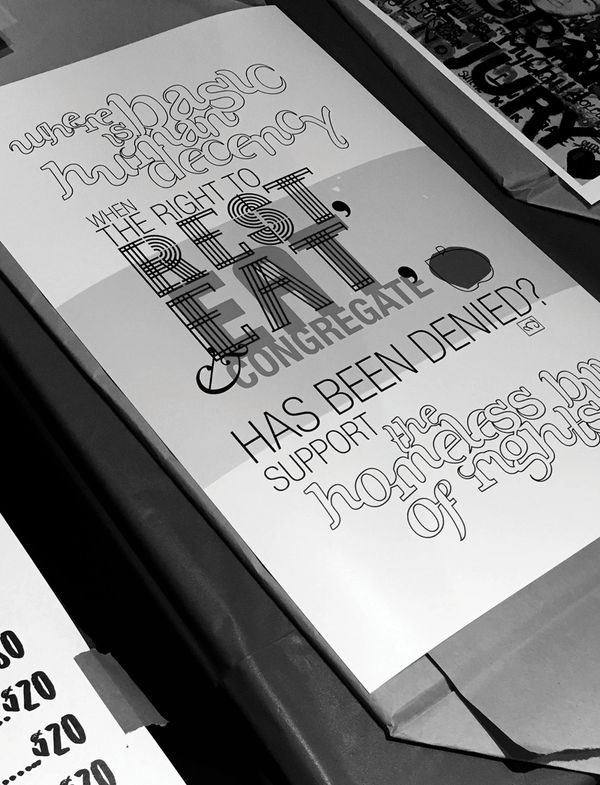 where is basic
human decency
WHEN
THE RIGHT TO
REST,
EAT,
& CONGREGATE
HAS BEEN DENIED?
SUPPORT the
homeless
of rights
JURY.
$20
$20
$20